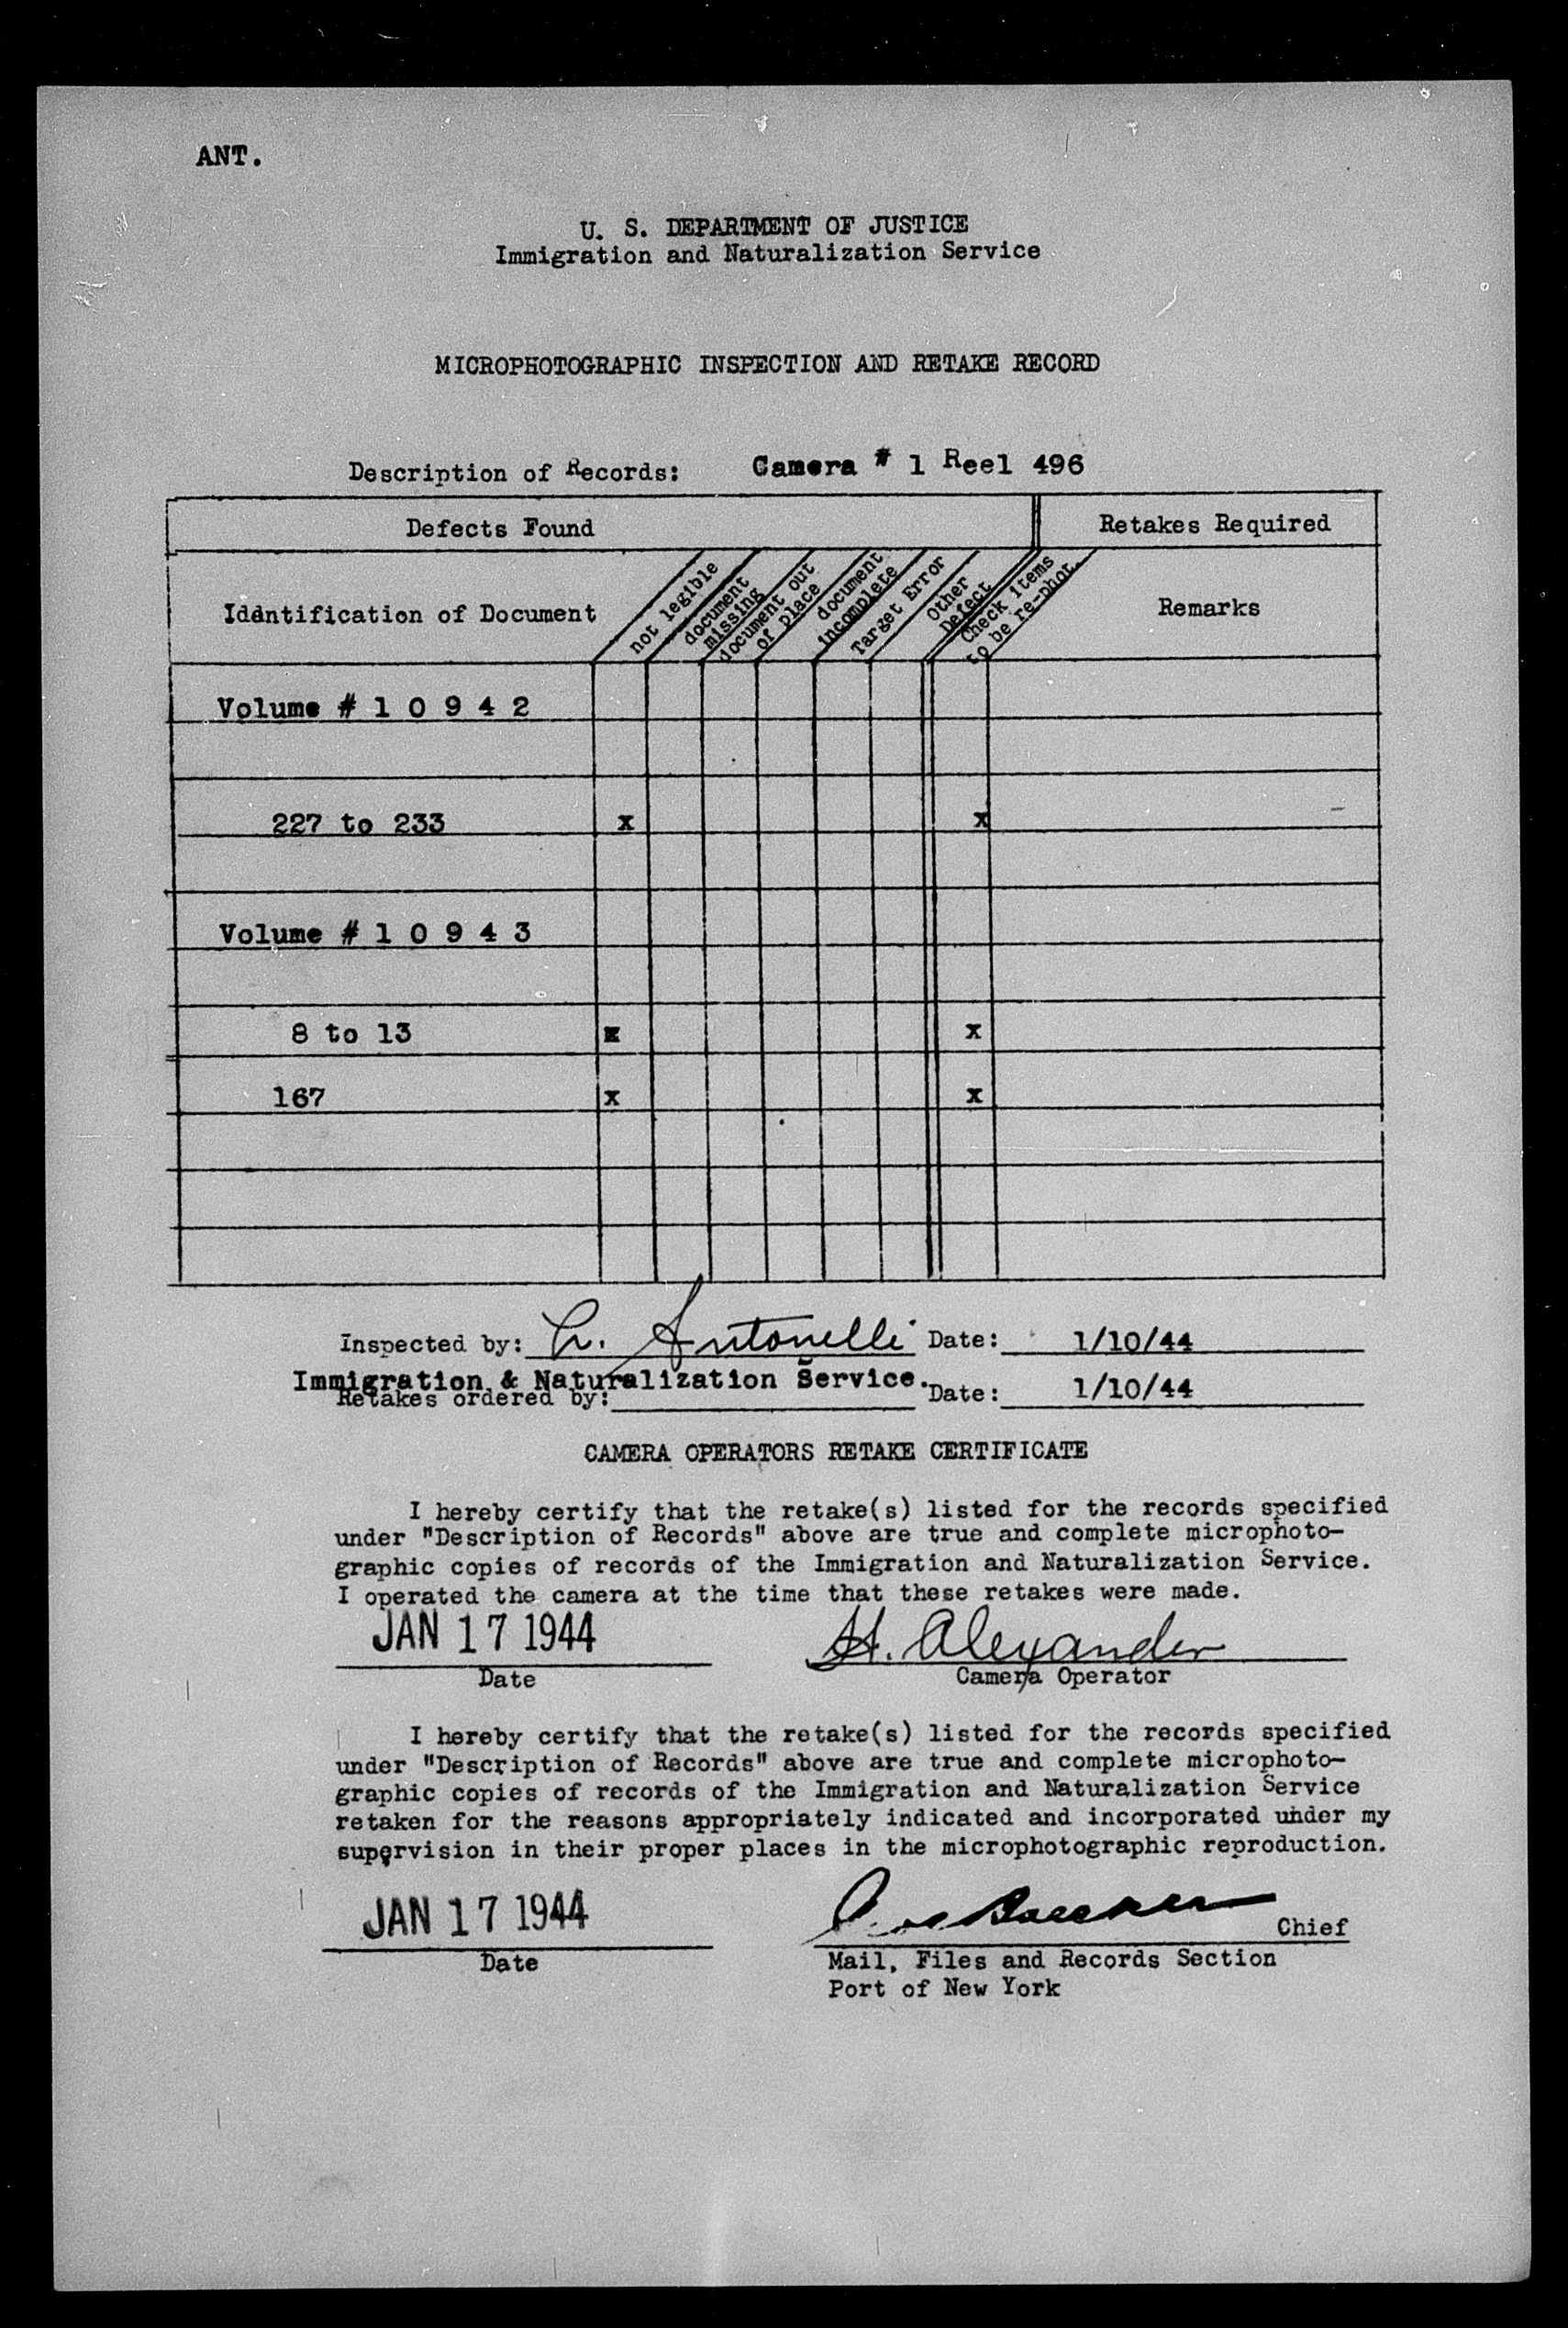 ANT.
U. S. DEPARTMENT OF JUSTICE
Immigration and Naturalization Service
MICROPHOTOGRAPHIC INSPECTION AND RETAKE RECORD
Description of Records: Camera # 1 Reel 496
Defects Found
Retakes Required
Idántification of Document
not legible
document missing
document out of place
document incomplete
Target Error
Other Defect
Check items to be re-phot.
Remarks
Volume # 1 0 9 4 2
227 to 233 x x
Volume # 1 0 9 4 3
8 to 13 x x
167 x x
Inspected by: Antonelli Date: 1/10/44
Immigration & Naturalization Service.
Retakes ordered by: Date: 1/10/44
CAMERA OPERATORS RETAKE CERTIFICATE
I hereby certify that the retake(s) listed for the records specified
under "Description of Records" above are true and complete microphoto-
graphic copies of records of the Immigration and Naturalization Service.
I operated the camera at the time that these retakes were made.
JAN 17 1944 H. Alexander
Date Camera Operator
I hereby certify that the retake(s) listed for the records specified
under "Description of Records" above are true and complete microphoto-
graphic copies of records of the Immigration and Naturalization Service
retaken for the reasons appropriately indicated and incorporated under my
supervision in their proper places in the microphotographic reproduction.
JAN 17 1944 Chief
Date Mail, Files and Records Section
Port of New York